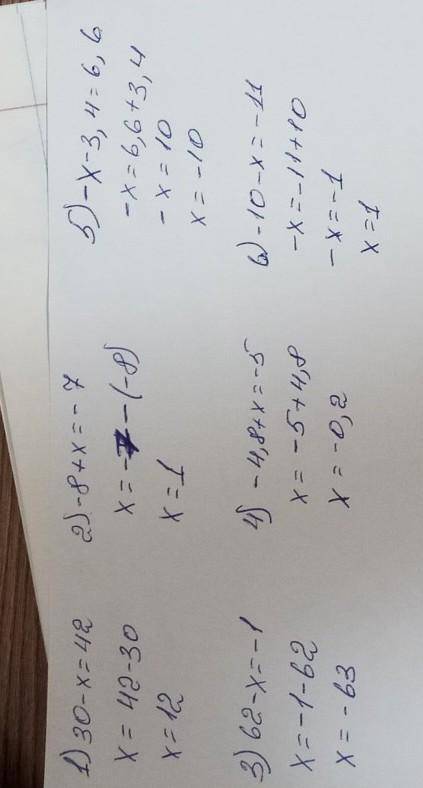 1) 30-x=42
x= 42-30
x=12
2) -8+x=-7
x=-7-(-8)
x=1
3) 62-x=-1
x=-1-62
x=-63
4) -4,8+x=-5
x= -5+4,8
x=-0,2
5) -x-3,4=6,6
-x=6,6+3,4
-x=10
x=-10
6) -10-x=-11
-x=-11+10
-x=-1
x=1